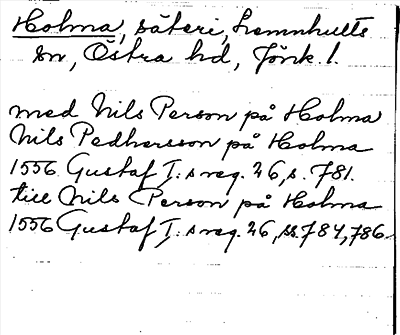 Holma, säteri, Lemnhults
sn, Östra hd, Jönk. l.
med Nils Person på Holma
Nils Pedhersson på Holma
1556 Gustaf I:s reg. 26, s. 781.
till Nils Person på Holma
1556 Gustaf I:s reg. 26, ss. 784, 786.